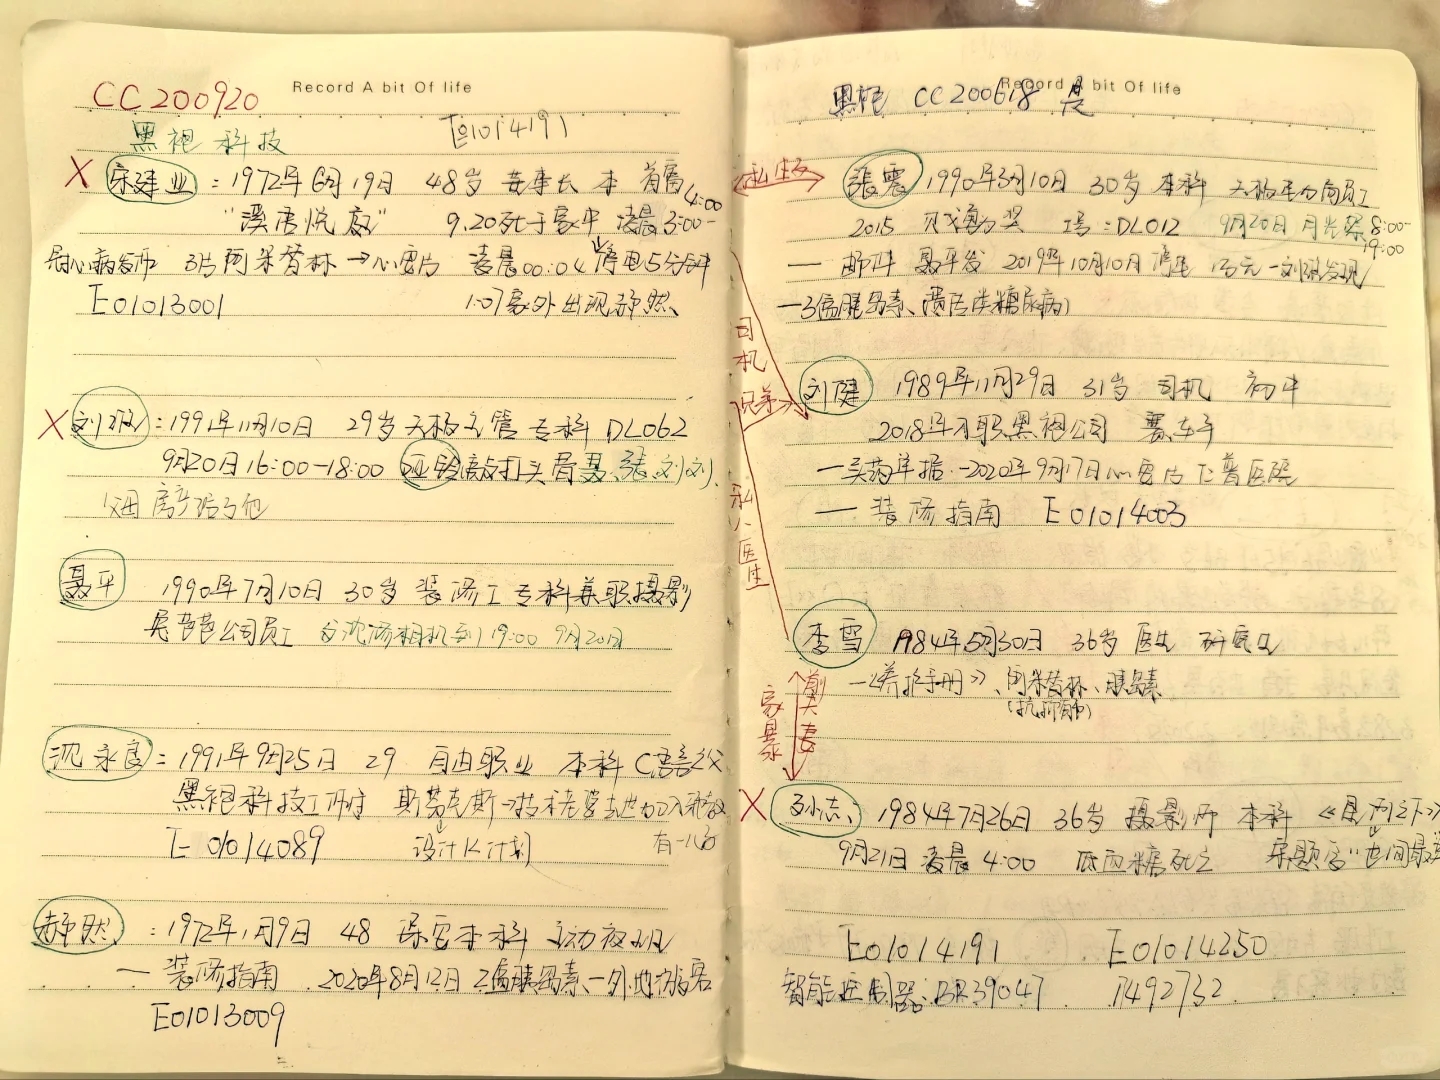 Record A bit Of life
CC200920
黑袍科技 E01014191
X 宋建业：1972年6月19日 48岁 董事长 本 首富
"溪语悦庭" 9.20死于家中 凌晨3:00-4:00
心病发作 3片阿米替林→心宽片 凌晨00:04停电15分钟
E01013001 1:07家外出现郝然
X 刘敏：1991年11月10日 29岁 天极主管 专科 DL062
9月20日16:00-18:00 亚铃敲打头骨 聂、张、刘、刘、
父母房产给了他
聂平 1990年7月10日 30岁 装修工 专科 兼职摄影
吴芭芭公司员工 台沈修相机到19:00 9月20日
沈永良：1991年9月25日 29 自由职业 本科 C语言之父
黑袍科技工作时 斯劳克斯→技术老婆去世加入
E01014089 设计K计划 有一
郝然：1972年1月9日 48 保安 本科 主动夜班
— 装修指南 2020年8月12日 2盒胰岛素—外地访客
E01013009
Record A bit Of life
黑袍 CC200618 是
私生子
张震 1990年3月10日 30岁 本科 天极平台前员工
2015 贝戈海勒奖 工号：DL012 9月20日 月光 8:00-19:00
— 邮件 聂平发 2019年10月10日 万元—刘敏发现
—3盒胰岛素、(糖尿病)
司机
兄弟
刘健 1989年11月29日 31岁 司机 初中
2018年入职黑袍公司 赛车手
—买药单据—2020年9月17日心宽片 仁普医院
— 装修指南 E01014003
私人医生
李雪 1984年5月30日 36岁 医生 研究生
—《养护手册》、阿米替林、胰岛素
(抗抑郁)
前夫妻
家暴
X 孙志：1984年7月26日 36岁 摄影师 本科
9月21日 凌晨4:00 低血糖死亡 宋题字"世间最
E01014191 E01014250
智能控制器：BR39047 1492732